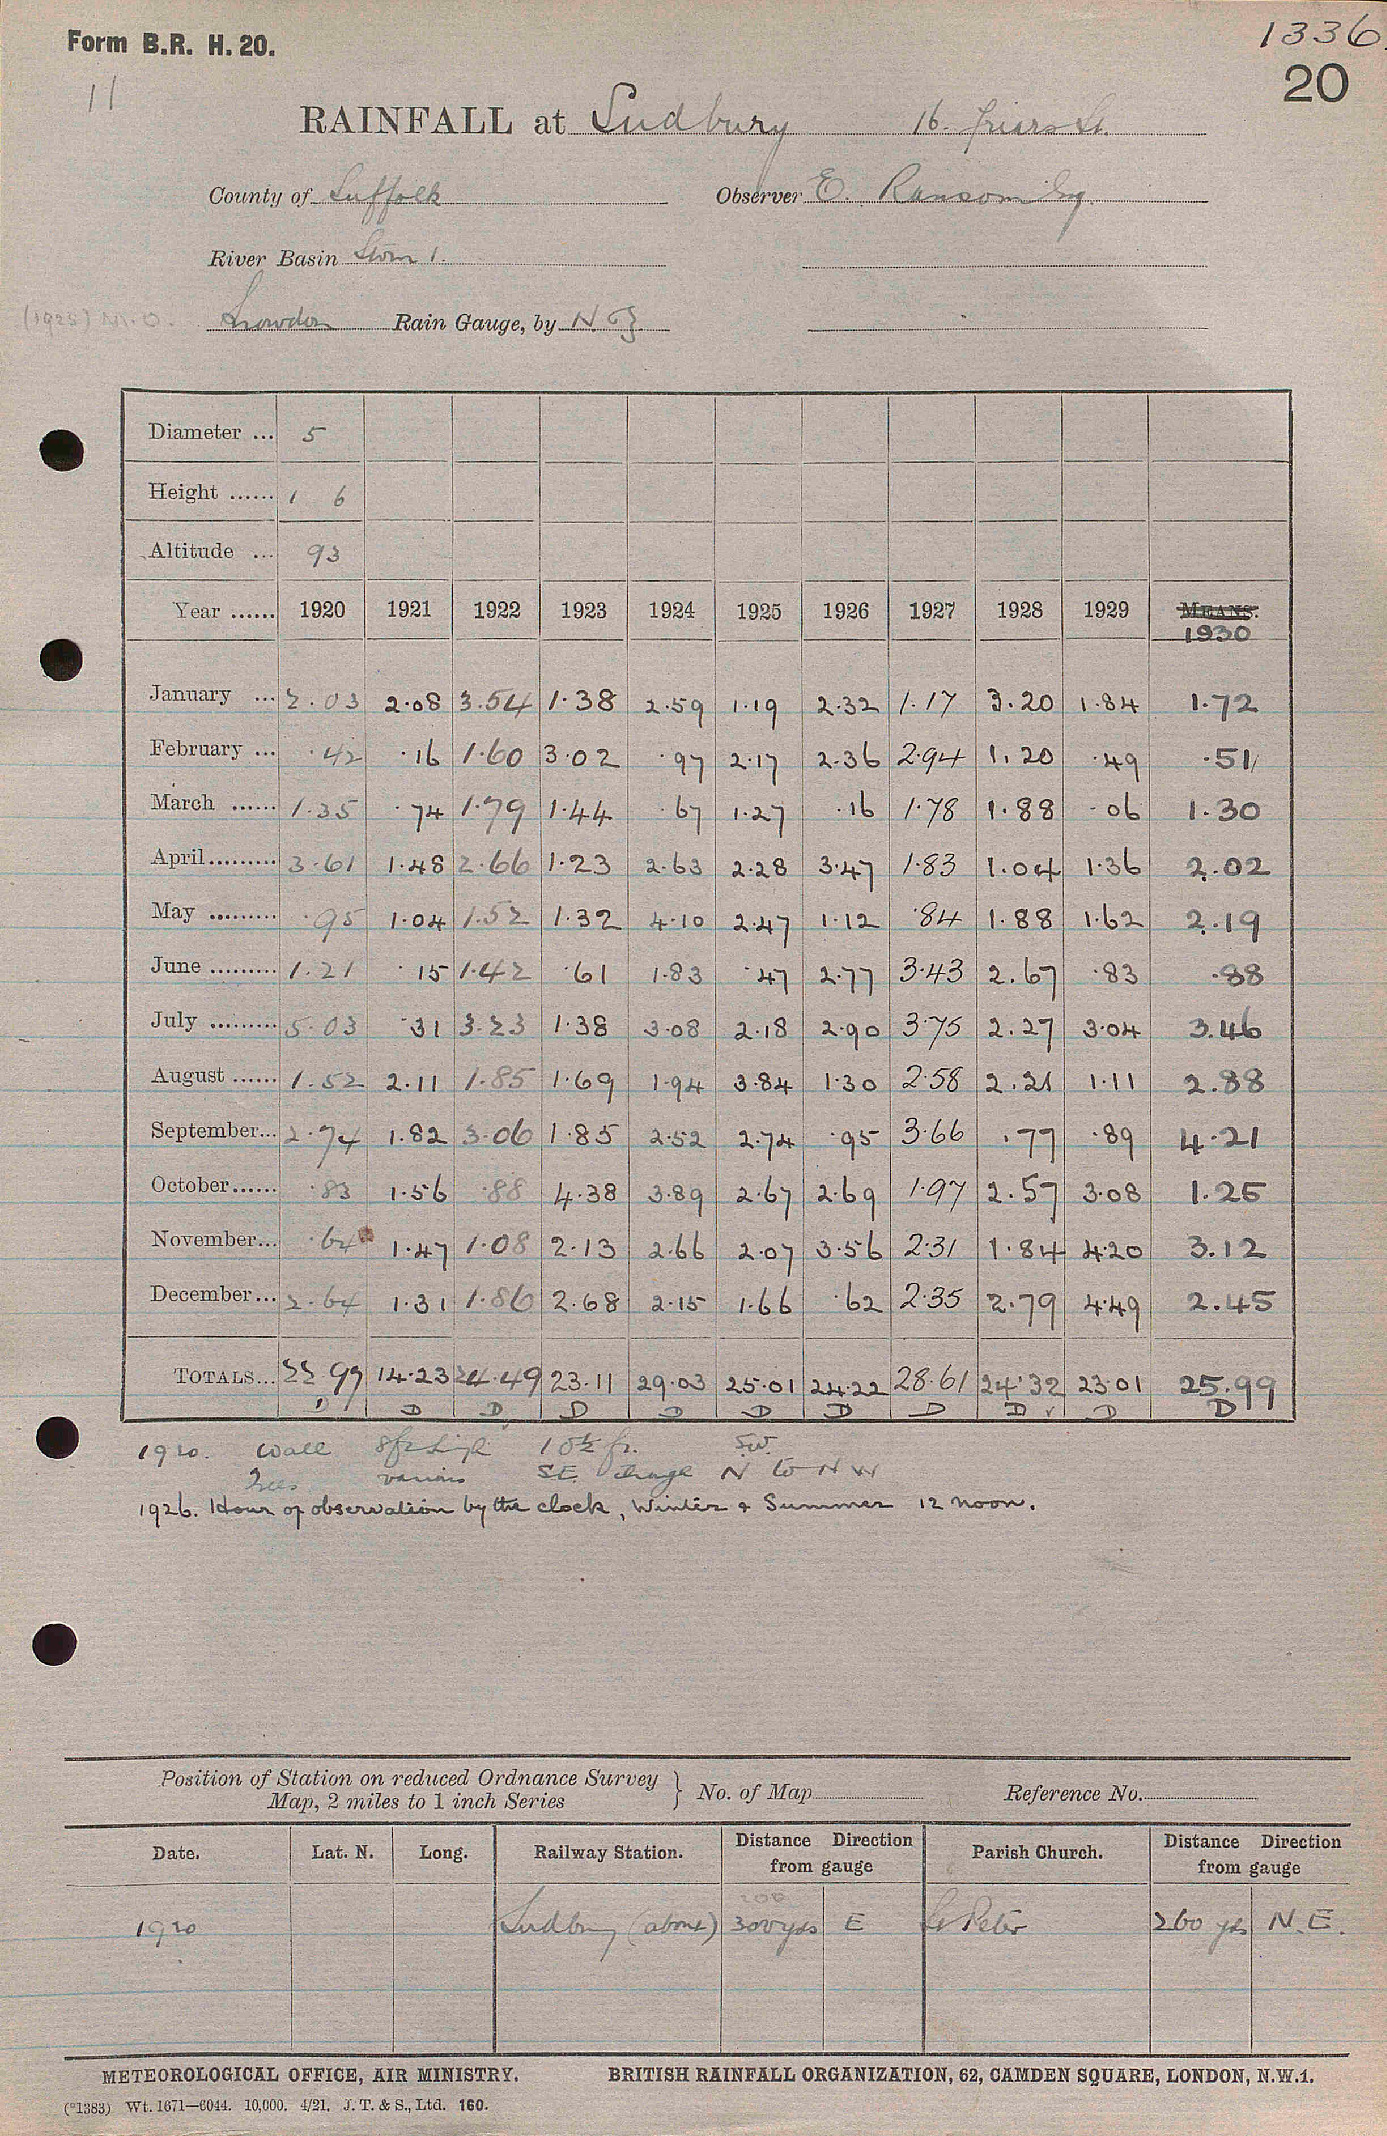 Form B.R. H. 20.
1336.
20
11
RAINFALL at Sudbury 16. Friars St.
County of Suffolk Observer E. Ransom Esq.
River Basin Stour 1.
(1925) M.O. Snowdon Rain Gauge, by N. & Z
Diameter ... 5
Height ...... 1 6
Altitude ... 93
Year ...... 1920 1921 1922 1923 1924 1925 1926 1927 1928 1929 MEANS.
1930
January ... 2.03 2.08 3.54 1.38 2.59 1.19 2.32 1.17 3.20 1.84 1.72
February ... .42 .16 1.60 3.02 .97 2.17 2.36 2.94 1.20 .49 .51
March ...... 1.35 .74 1.79 1.44 .67 1.27 .16 1.78 1.88 .06 1.30
April ......... 3.61 1.48 2.66 1.23 2.63 2.28 3.47 1.83 1.04 1.36 2.02
May ......... .95 1.04 1.52 1.32 4.10 2.47 1.12 .84 1.88 1.62 2.19
June ......... 1.21 .15 1.42 .61 1.83 .47 2.77 3.43 2.67 .83 .88
July ......... 5.03 .31 3.23 1.38 3.08 2.18 2.90 3.75 2.27 3.04 3.46
August ...... 1.52 2.11 1.85 1.69 1.94 3.84 1.30 2.58 2.21 1.11 2.88
September... 2.74 1.82 3.06 1.85 2.52 2.74 .95 3.66 .77 .89 4.21
October...... .83 1.56 .88 4.38 3.89 2.67 2.69 1.97 2.57 3.08 1.25
November... .64 1.47 1.08 2.13 2.66 2.07 3.56 2.31 1.84 4.20 3.12
December... 2.64 1.31 1.86 2.68 2.15 1.66 .62 2.35 2.79 4.49 2.45
TOTALS... 22.97 14.23 24.49 23.11 29.03 25.01 24.22 28.61 24.32 23.01 25.99
D D D D D D D D D D D
1920. Wall 8ft high 10½ ft. SW.
Trees various SE. change N to NW
1926. Hour of observation by the clock, Winter & Summer 12 noon.
Position of Station on reduced Ordnance Survey Map, 2 miles to 1 inch Series } No. of Map Reference No.
Date. Lat. N. Long. Railway Station. Distance Direction from gauge Parish Church. Distance Direction from gauge
200
1920 Sudbury (above) 300 yds E St Peter 260 yds N.E.
METEOROLOGICAL OFFICE, AIR MINISTRY. BRITISH RAINFALL ORGANIZATION, 62, CAMDEN SQUARE, LONDON, N.W.1.
(*1383) Wt. 1671—6044. 10,000. 4/21. J. T. & S., Ltd. 160.